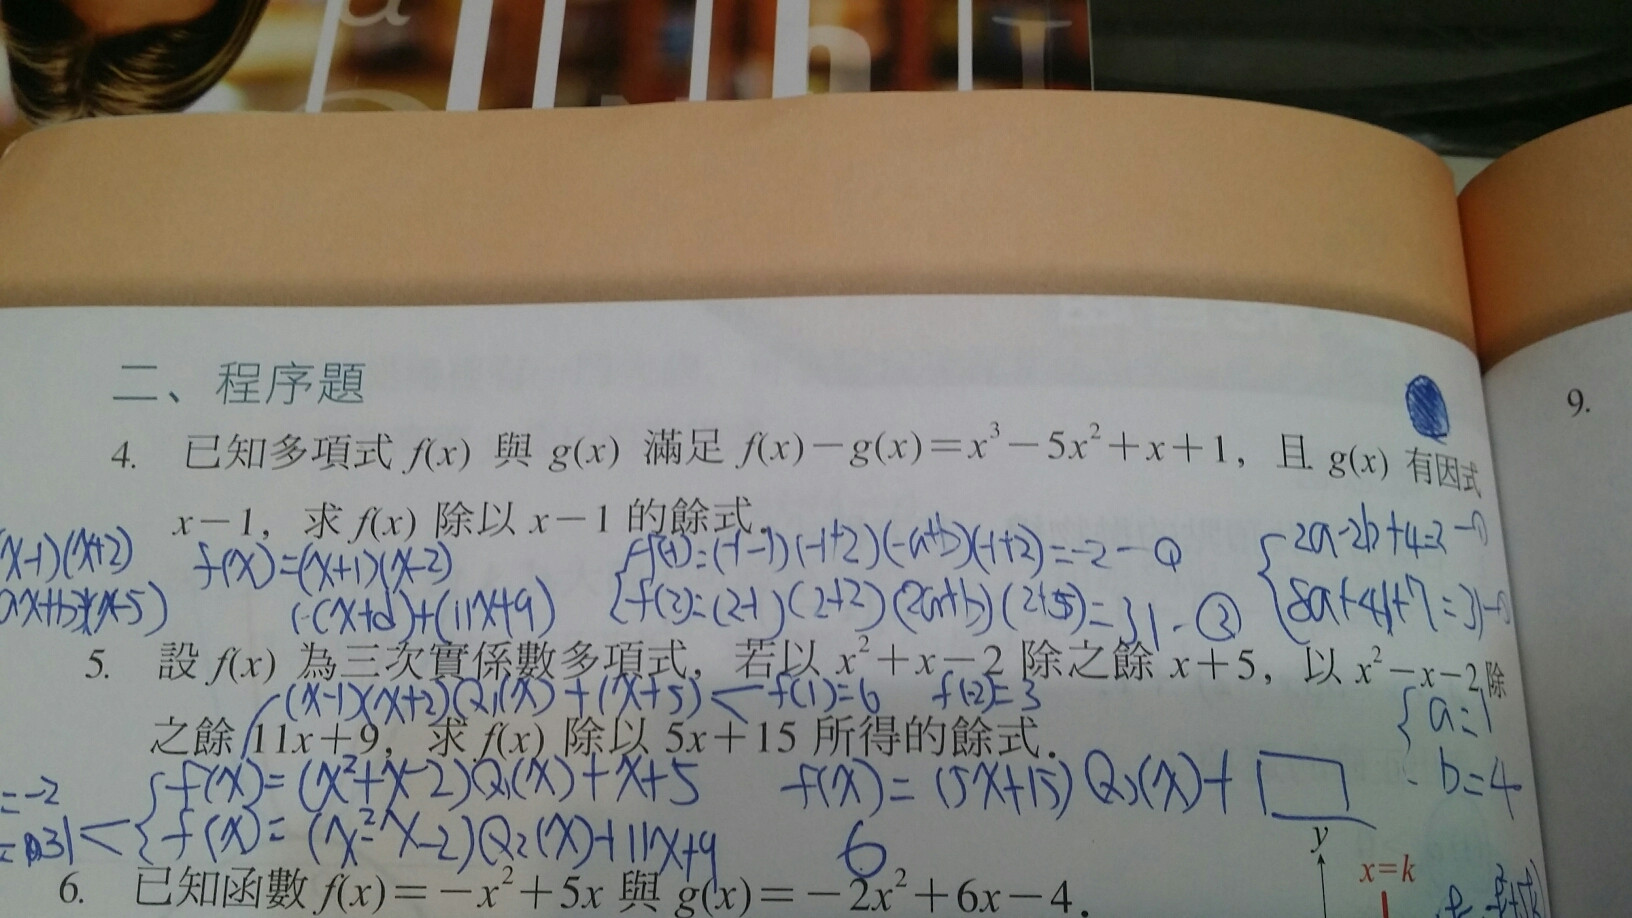 二、程序題
9.
4. 已知多項式 f(x) 與 g(x) 滿足 f(x)−g(x)=x³−5x²+x+1，且 g(x) 有因式
x−1，求 f(x) 除以 x−1 的餘式。
(x-1)(x+2) f(x)=(x+1)(x-2) f(-1)=(-1-1)(-1+2)(-a+b)(-1+2)=-2-① 2a-2b+4=3-①
(ax+b)(x-5) (cx+d)+(11x+9) f(2)=(2-1)(2+2)(2a+b)(2+5)=31-② 8a+4b+7=31-②
5. 設 f(x) 為三次實係數多項式，若以 x²+x−2 除之餘 x+5，以 x²−x−2 除
(x-1)(x+2)Q₁(x)+(x+5) f(1)=6 f(-2)=3
a=1
之餘 11x+9，求 f(x) 除以 5x+15 所得的餘式．
=-2 f(x)=(x²+x-2)Q₁(x)+x+5 f(x)=(5x+15)Q₃(x)+ b=4
=31 f(x)=(x²-x-2)Q₂(x)+11x+9 6
y
x=k
6. 已知函數 f(x)=−x²+5x 與 g(x)=−2x²+6x−4．